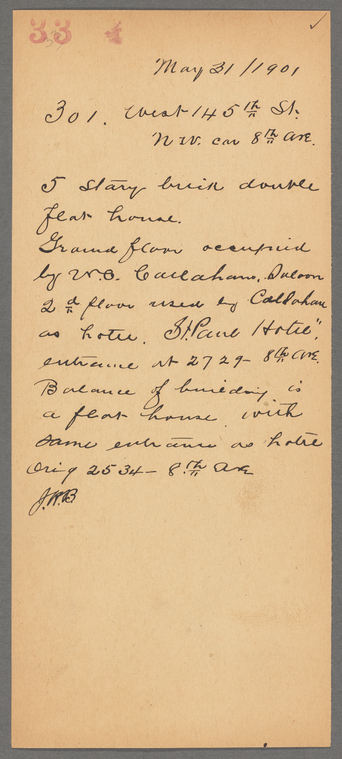 33 4
May 31/1901
301. West 145th St.
N.W. cor 8th Ave.
5 story brick double
flat house.
Ground floor occupied
by W.O. Callahan, Saloon
2d floor used by Callahan
as hotel. "St. Paul Hotel",
entrance at 2729- 8th Ave.
Balance of building is
a flat house with
same entrance as hotel
Orig 2534- 8th Ave